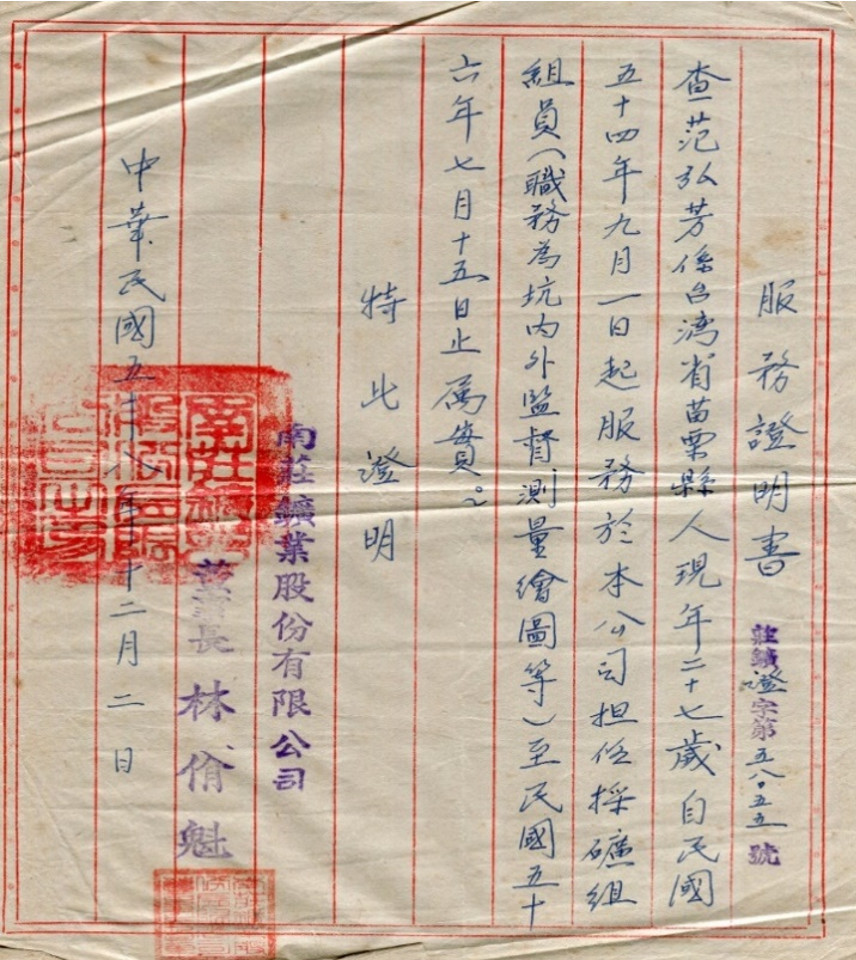 服務證明書
莊鑛證字第五八·五五號
查范弘芳係台湾省苗栗縣人現年二十七歲自民國
五十四年九月一日起服務於本公司担任採礦組
組員（職務為坑內外監督測量繪圖等）至民國五十
六年七月十五日止属實。
特此證明
南莊鑛業股份有限公司
董事長 林偗魁
中華民國五十八年十二月二日